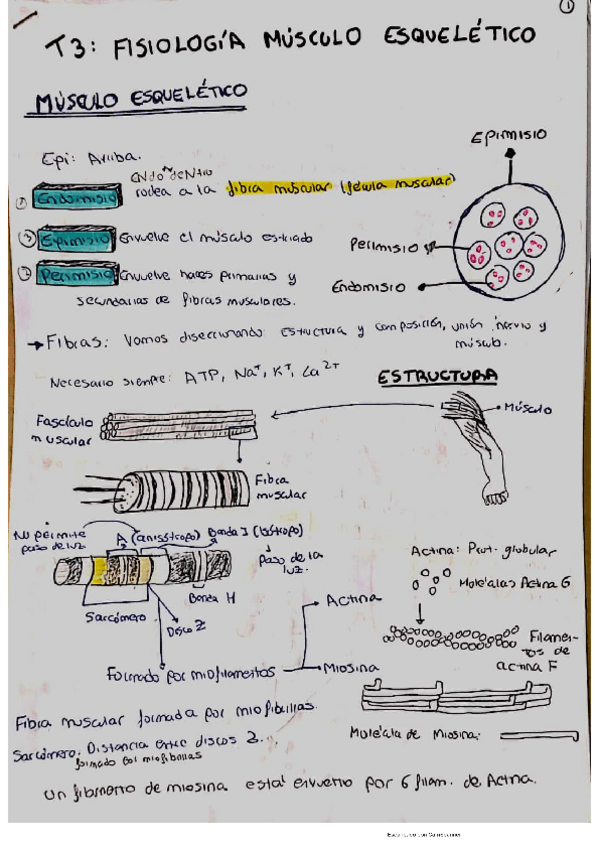 ①
T3: FISIOLOGÍA MÚSCULO ESQUELÉTICO
MÚSCULO ESQUELÉTICO
EPIMISIO
Epi: Arriba.
ENDO ~ DENTRO
① Endomisio rodea a la fibra muscular (célula muscular)
③ Epimisio Envuelve el músculo estriado
Perimisio
② Perimisio Envuelve haces primarias y
secundarias de fibras musculares.
Endomisio
→ Fibras: Vamos diseccionando estructura y composición, unión nervio y
músculo.
Necesario siempre: ATP, Na⁺, K⁺, Ca²⁺
ESTRUCTURA
Fascículo
muscular
Músculo
Fibra
muscular
No permite
paso de luz
A (anisótropo) Banda I (isótropo)
Paso de la
luz.
Banda H
Sarcómero
Disco Z
Actina: Prot. globular
Moléculas Actina G
Filamen-
tos de
actina F
Actina
Formado por miofilamentos
Miosina
Fibra muscular formada por miofibrillas.
Molécula de Miosina:
Sarcómero: Distancia entre discos Z.
formado por miofibrillas
Un filamento de miosina está envuelto por 6 filam. de Actina.
Escaneado con CamScanner